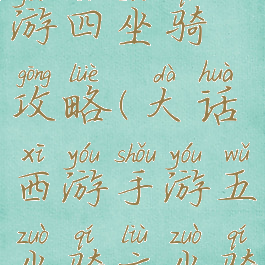 游四坐骑
gōng lüè dà huà
攻略(大话
xī yóu shǒu yóu wǔ
西游手游五
zuò qí liù zuò qí
坐骑六坐骑